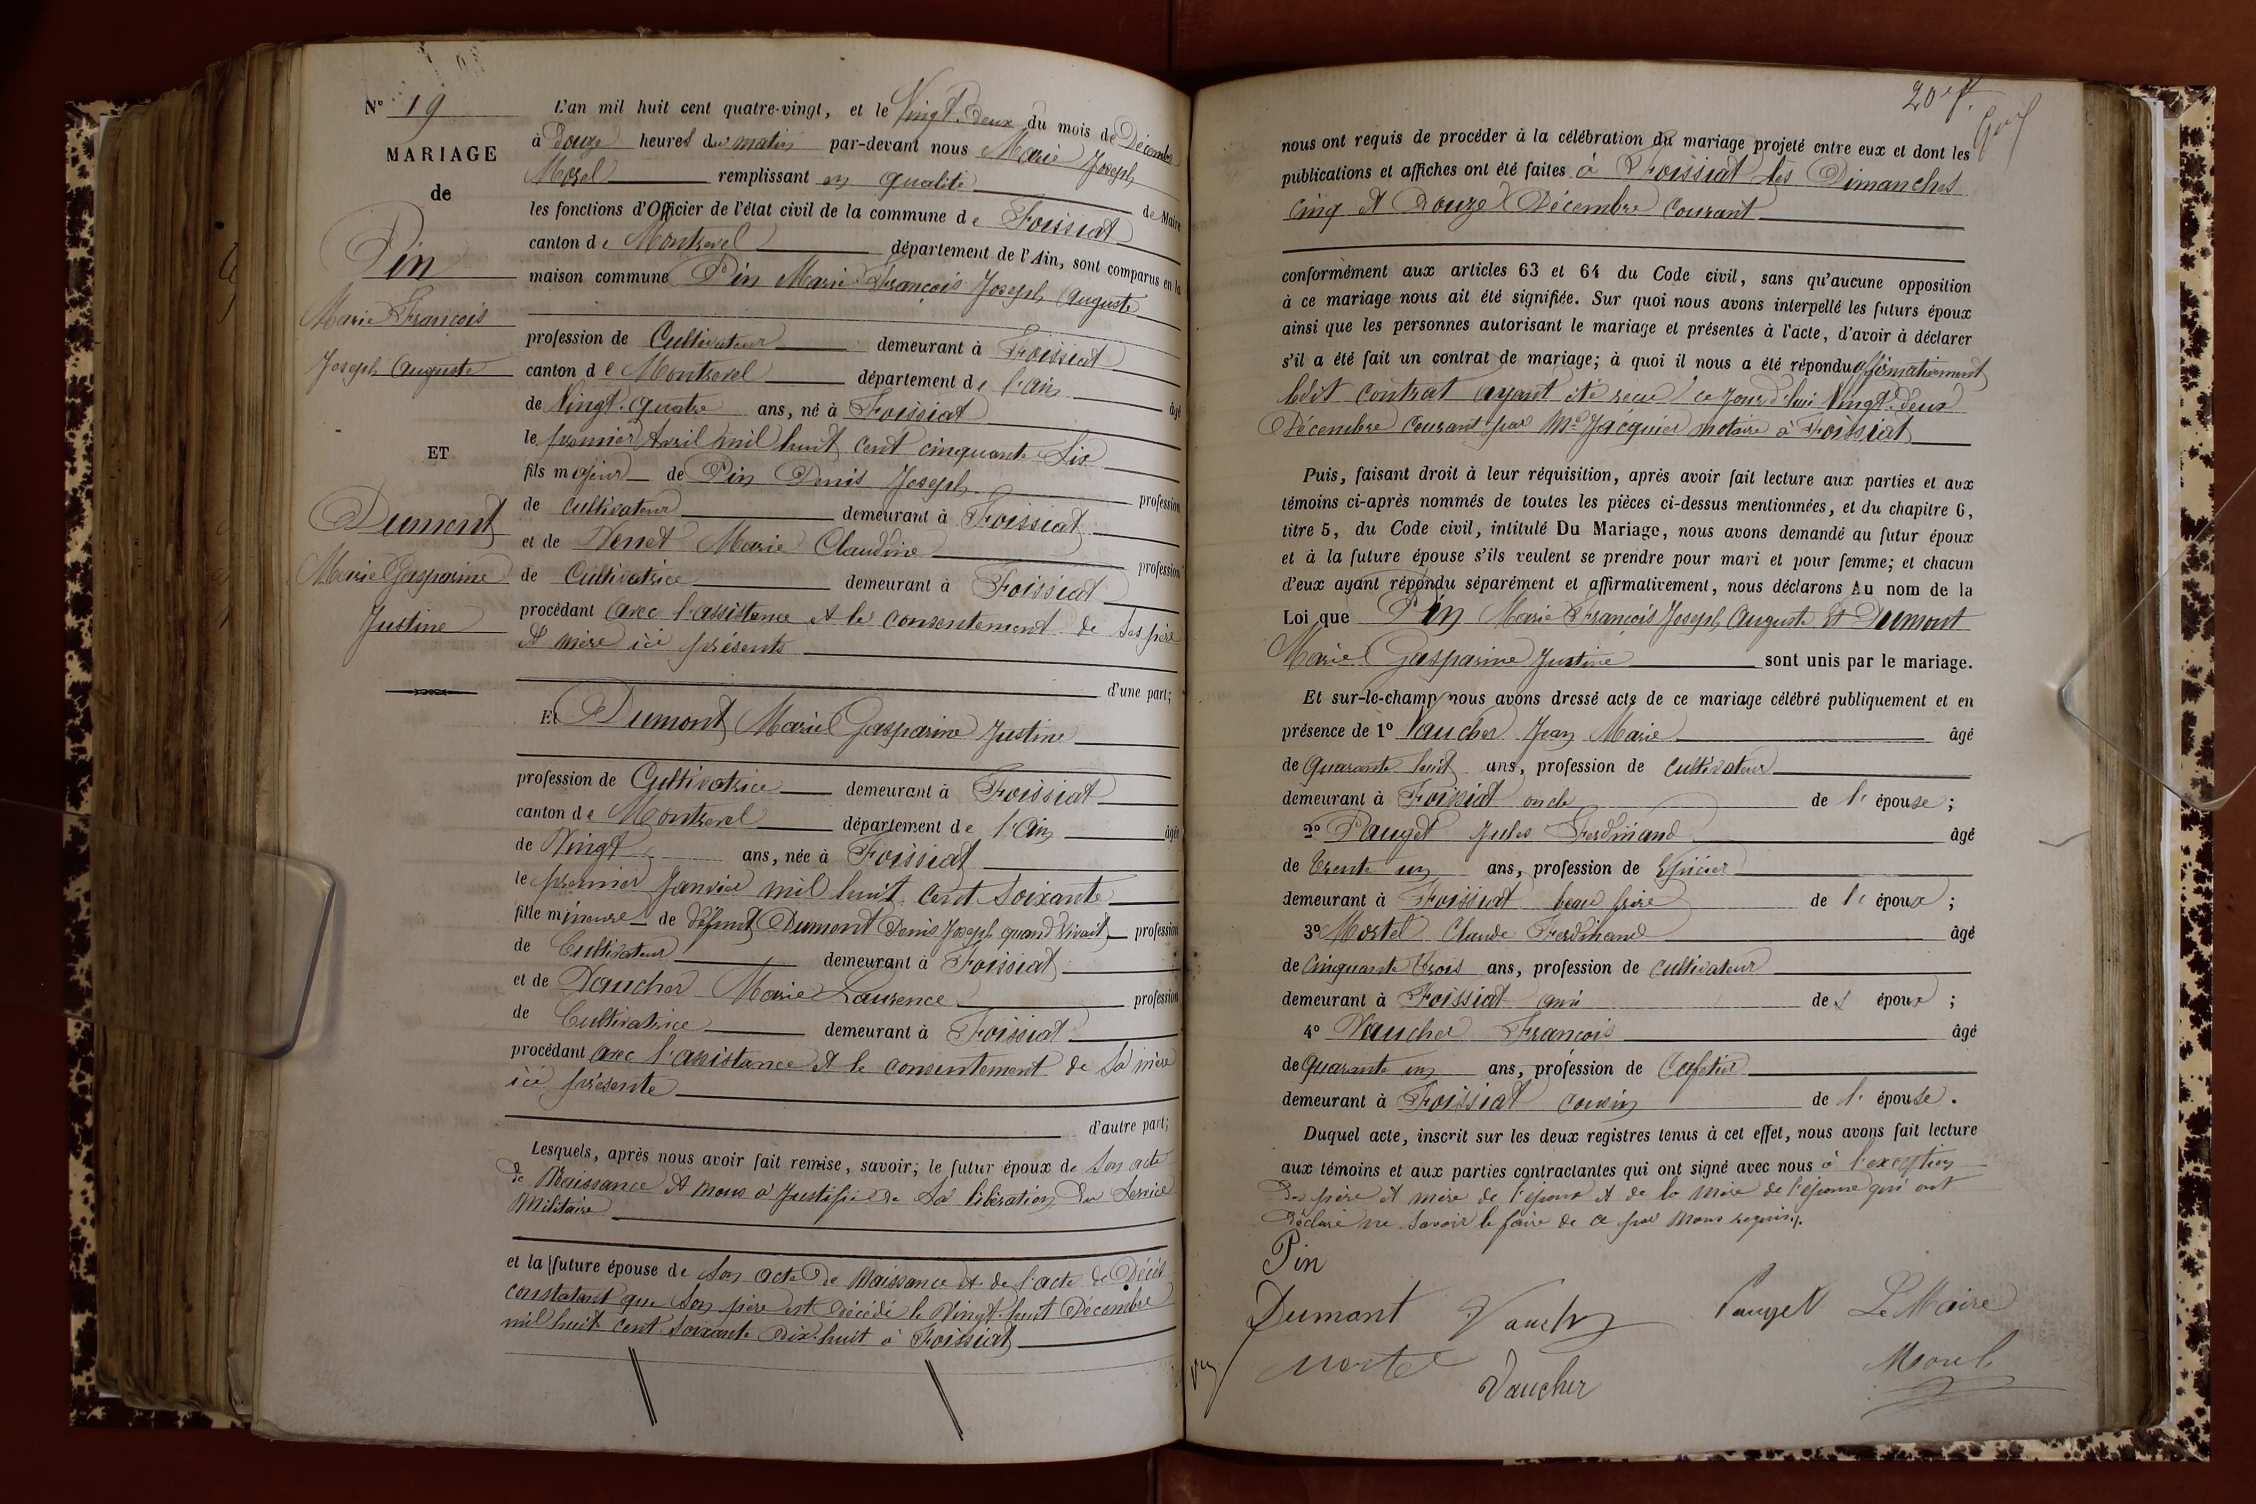 N° 19
MARIAGE
de
Pin
Marie François
Joseph Auguste
ET
Dumont
Marie Gasparine
Justine
L'an mil huit cent quatre-vingt, et le Vingt-deux du mois de Décembre
à Douze heures du matin par-devant nous Marie Joseph
Morel remplissant en qualité de Maire
les fonctions d'Officier de l'état civil de la commune de Foissiat
canton de Montrevel département de l'Ain, sont comparus en la
maison commune Pin Marie François Joseph Auguste
profession de Cultivateur demeurant à Foissiat
canton de Montrevel département de l'ain âgé
de Vingt-quatre ans, né à Foissiat
le premier Avril mil huit cent cinquante Six
fils majeur de Pin Denis Joseph profession
de cultivateur demeurant à Foissiat
et de Marie Claudine profession
de Cultivatrice demeurant à Foissiat
procédant avec l'assistance et le consentement de ses père
et mère ici présents
d'une part;
Et Dumont Marie Gasparine Justine
profession de Cultivatrice demeurant à Foissiat
canton de Montrevel département de l'Ain âgée
de Vingt ans, née à Foissiat
le premier Janvier mil huit cent Soixante
fille mineure de défunt Dumont Denis Joseph quand vivait profession
de Cultivateur demeurant à Foissiat
et de Vaucher Marie Laurence profession
de Cultivatrice demeurant à Foissiat
procédant avec l'assistance et le consentement de Sa mère
ici présente
d'autre part;
Lesquels, après nous avoir fait remise, savoir; le futur époux de Son acte
de Naissance et nous a Justifié de Sa libération du Service
Militaire
et la future épouse de Son acte de Naissance et de l'acte de Décès
constatant que Son père est décédé le Vingt-huit Décembre
mil huit cent Soixante Dix-huit à Foissiat
20e f.
nous ont requis de procéder à la célébration du mariage projeté entre eux et dont les
publications et affiches ont été faites à Foissiat les Dimanches
cinq et Douze Décembre courant
conformément aux articles 63 et 64 du Code civil, sans qu'aucune opposition
à ce mariage nous ait été signifiée. Sur quoi nous avons interpellé les futurs époux
ainsi que les personnes autorisant le mariage et présentes à l'acte, d'avoir à déclarer
s'il a été fait un contrat de mariage; à quoi il nous a été répondu affirmativement
ledit contrat ayant été reçu ce jour d'hui Vingt-deux
Décembre courant par Me Jacquier notaire à Foissiat
Puis, faisant droit à leur réquisition, après avoir fait lecture aux parties et aux
témoins ci-après nommés de toutes les pièces ci-dessus mentionnées, et du chapitre 6,
titre 5, du Code civil, intitulé Du Mariage, nous avons demandé au futur époux
et à la future épouse s'ils veulent se prendre pour mari et pour femme; et chacun
d'eux ayant répondu séparément et affirmativement, nous déclarons Au nom de la
Loi que Pin Marie François Joseph Auguste et Dumont
Marie Gasparine Justine sont unis par le mariage.
Et sur-le-champ nous avons dressé acte de ce mariage célébré publiquement et en
présence de 1° Vaucher Jean Marie âgé
de Quarante huit ans, profession de cultivateur
demeurant à Foissiat oncle de l'épouse;
2° Pauget Jules Ferdinand âgé
de trente un ans, profession de Epicier
demeurant à Foissiat beau frère de l'époux;
3° Mortel Claude Ferdinand âgé
de Cinquante trois ans, profession de cultivateur
demeurant à Foissiat ami des époux;
4° Vaucher François âgé
de Quarante un ans, profession de Cafetier
demeurant à Foissiat cousin de l'épouse.
Duquel acte, inscrit sur les deux registres tenus à cet effet, nous avons fait lecture
aux témoins et aux parties contractantes qui ont signé avec nous à l'exception
des père et mère de l'époux et de la mère de l'épouse qui ont
Déclaré ne Savoir le faire de ce par Nous requis.
Pin
Dumont Vaucher Pauget Le Maire
Mortel Vaucher Morel